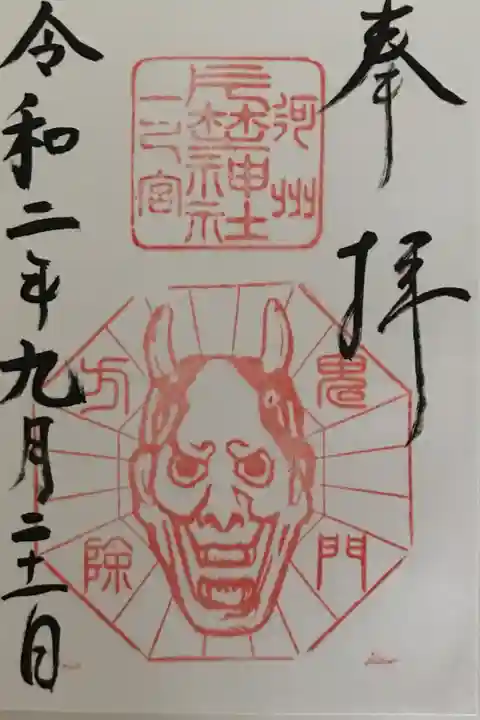 奉拝
河州
片埜神社
一之宮
鬼門
方除
令和二年九月二十一日